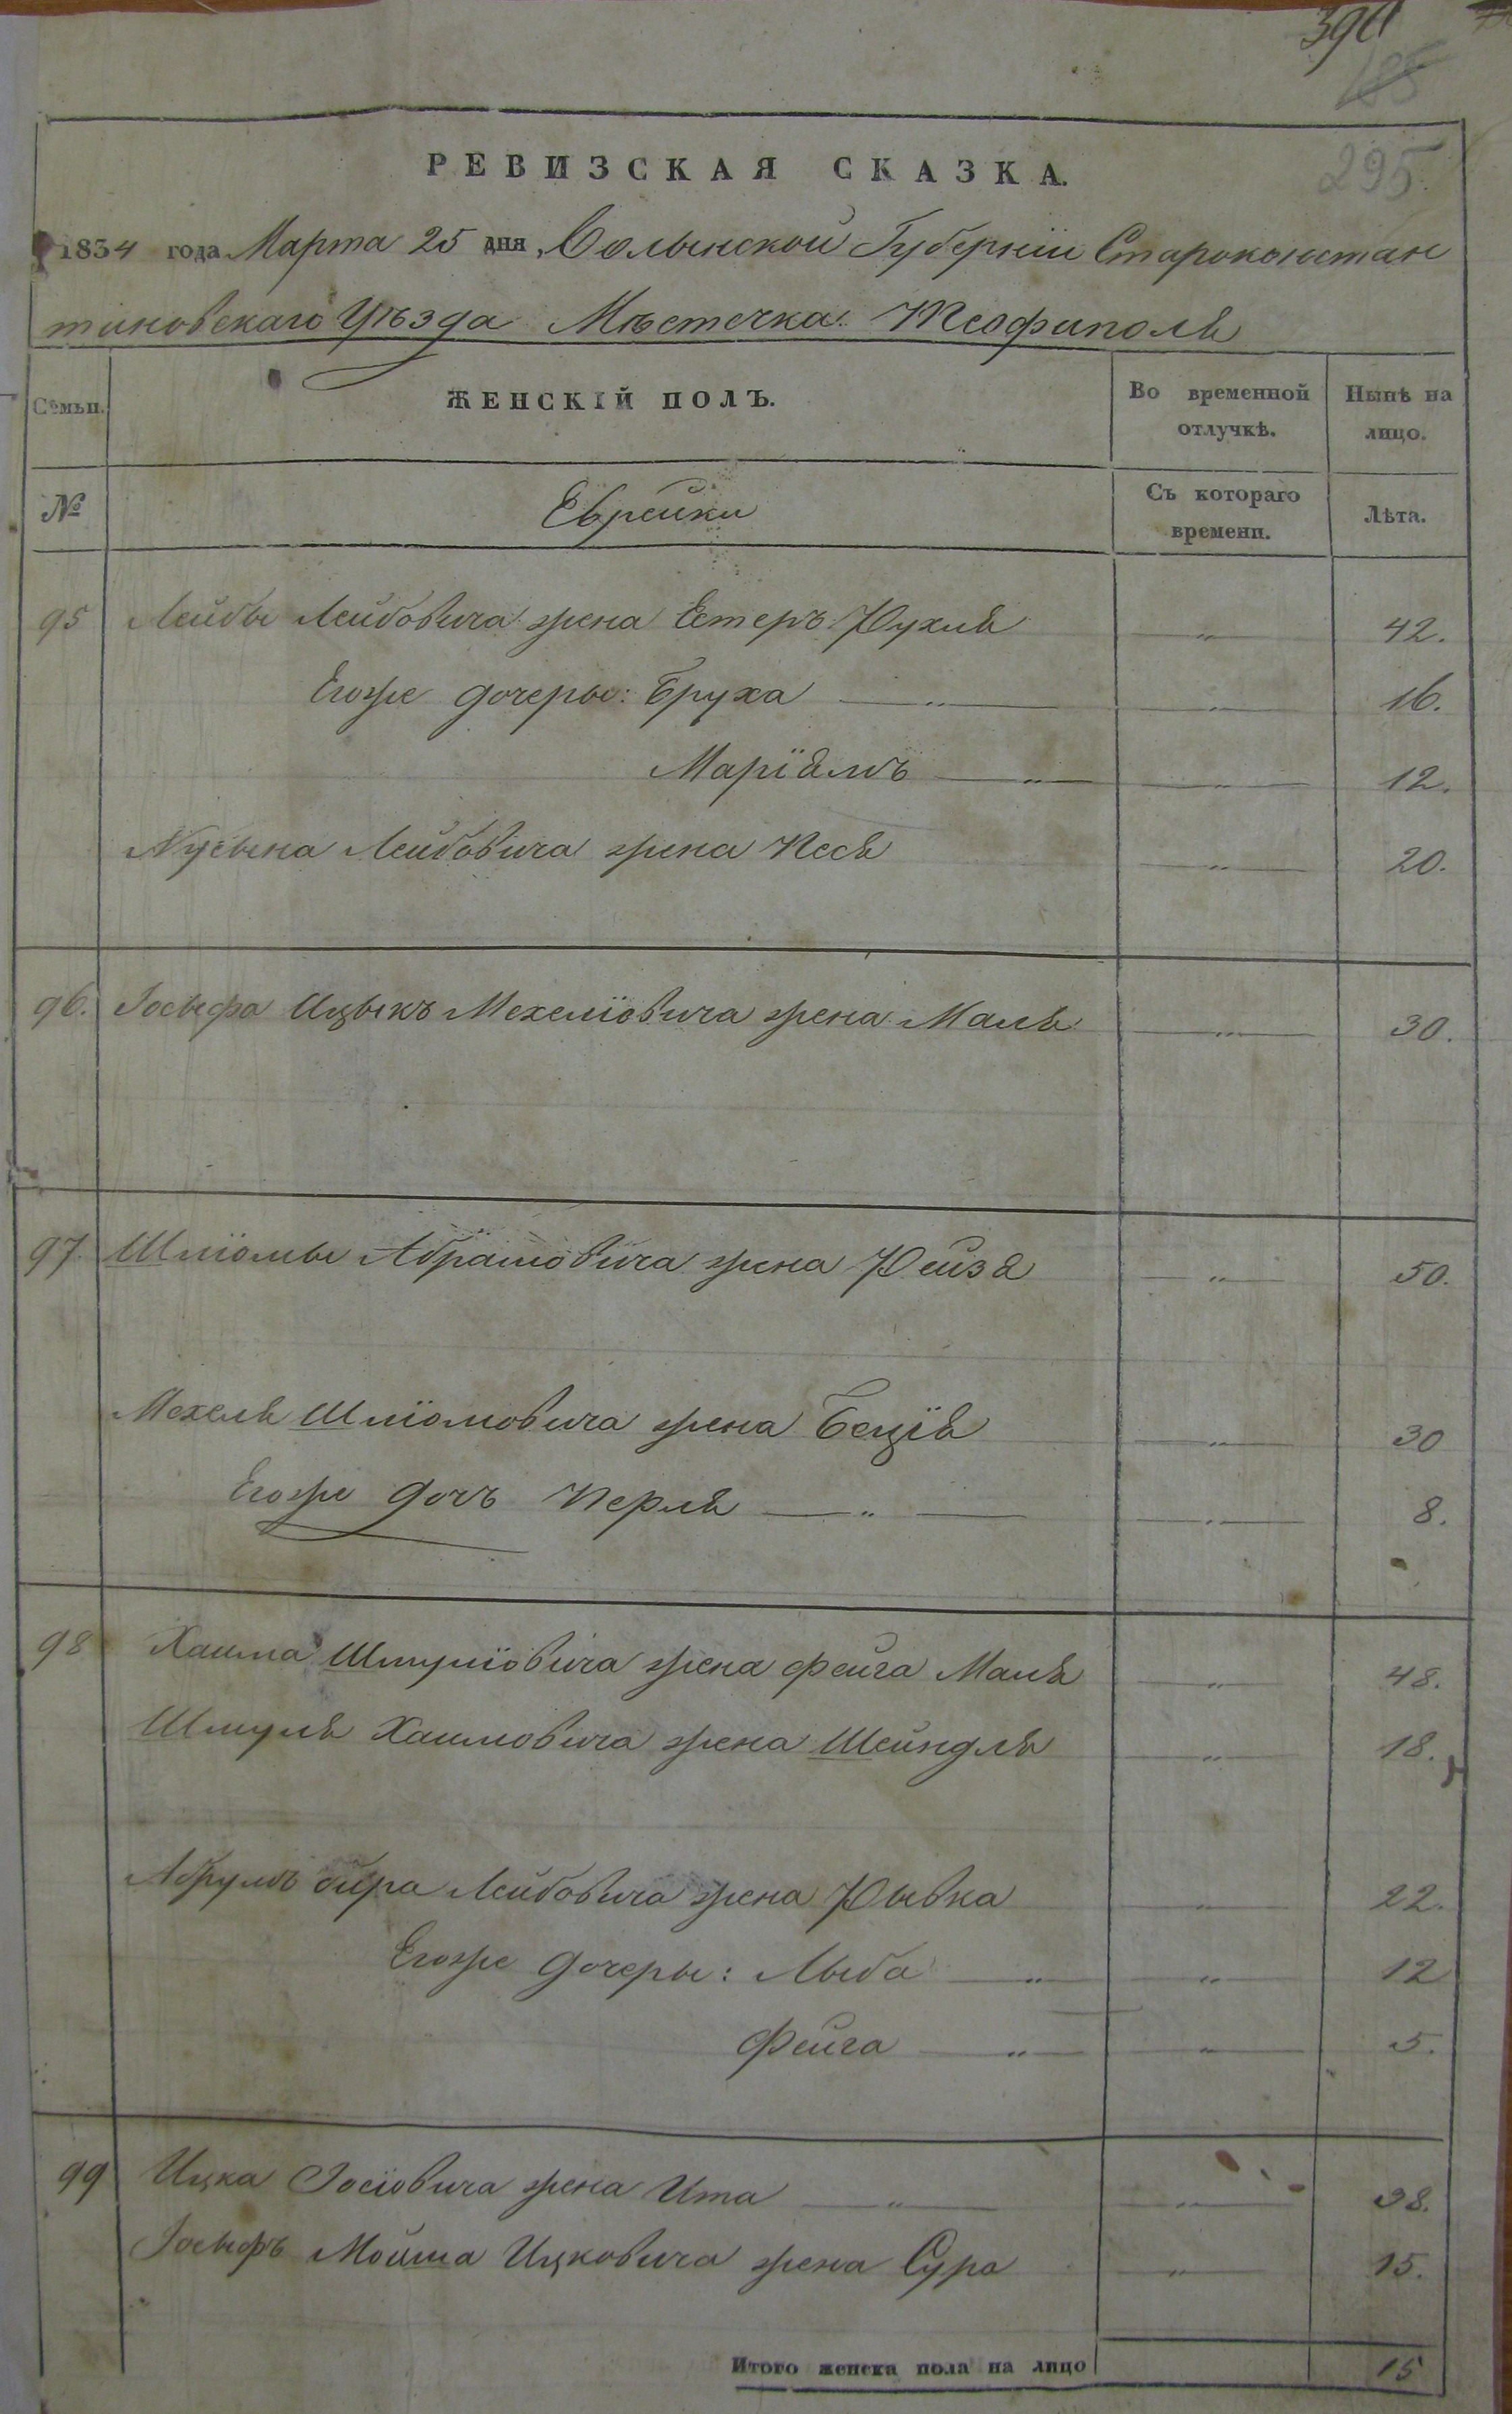 390
185
295
РЕВИЗСКАЯ СКАЗКА.
1834 года Марта 25 дня, Волынской Губерніи Староконстан
тиновскаго Уѣзда Мѣстечка Теофиполя
Семьи. ЖЕНСКІЙ ПОЛЪ. Во временной отлучкѣ. Нынѣ на лицо.
№ Еврейки Съ котораго времени. Лѣта.
95 Лейбы Лейбовича жена Естеръ Рухля — " — 42.
Егоже дочеры: Бруха — " — — " — 16.
Маріямъ — " — — " — 12.
Нусына Лейбовича жена Песя — " — 20.
96. Іосыфа Ицыкъ Мехеліовича жена Маля — " — 30.
97. Шліомы Абрамовича жена Рейзя — " — 50.
Мехеля Шліомовича жена Беція — " — 30
Егоже дочъ Перля — " — — " — 8.
98 Хаима Шмуліовича жена Фейга Маля — " — 48.
Шмуля Хаимовича жена Шейндля — " — 18.
Абрумъ Бира Лейбовича жена Рывка — " — 22.
Егоже дочеры: Лыба — " — — " — 12
Фейга — " — — " — 5.
99 Ицка Іосіовича жена Ита — " — — " — 38.
Іосыфъ Мойша Ицковича жена Сура — " — 15.
Итого женска пола на лицо 15